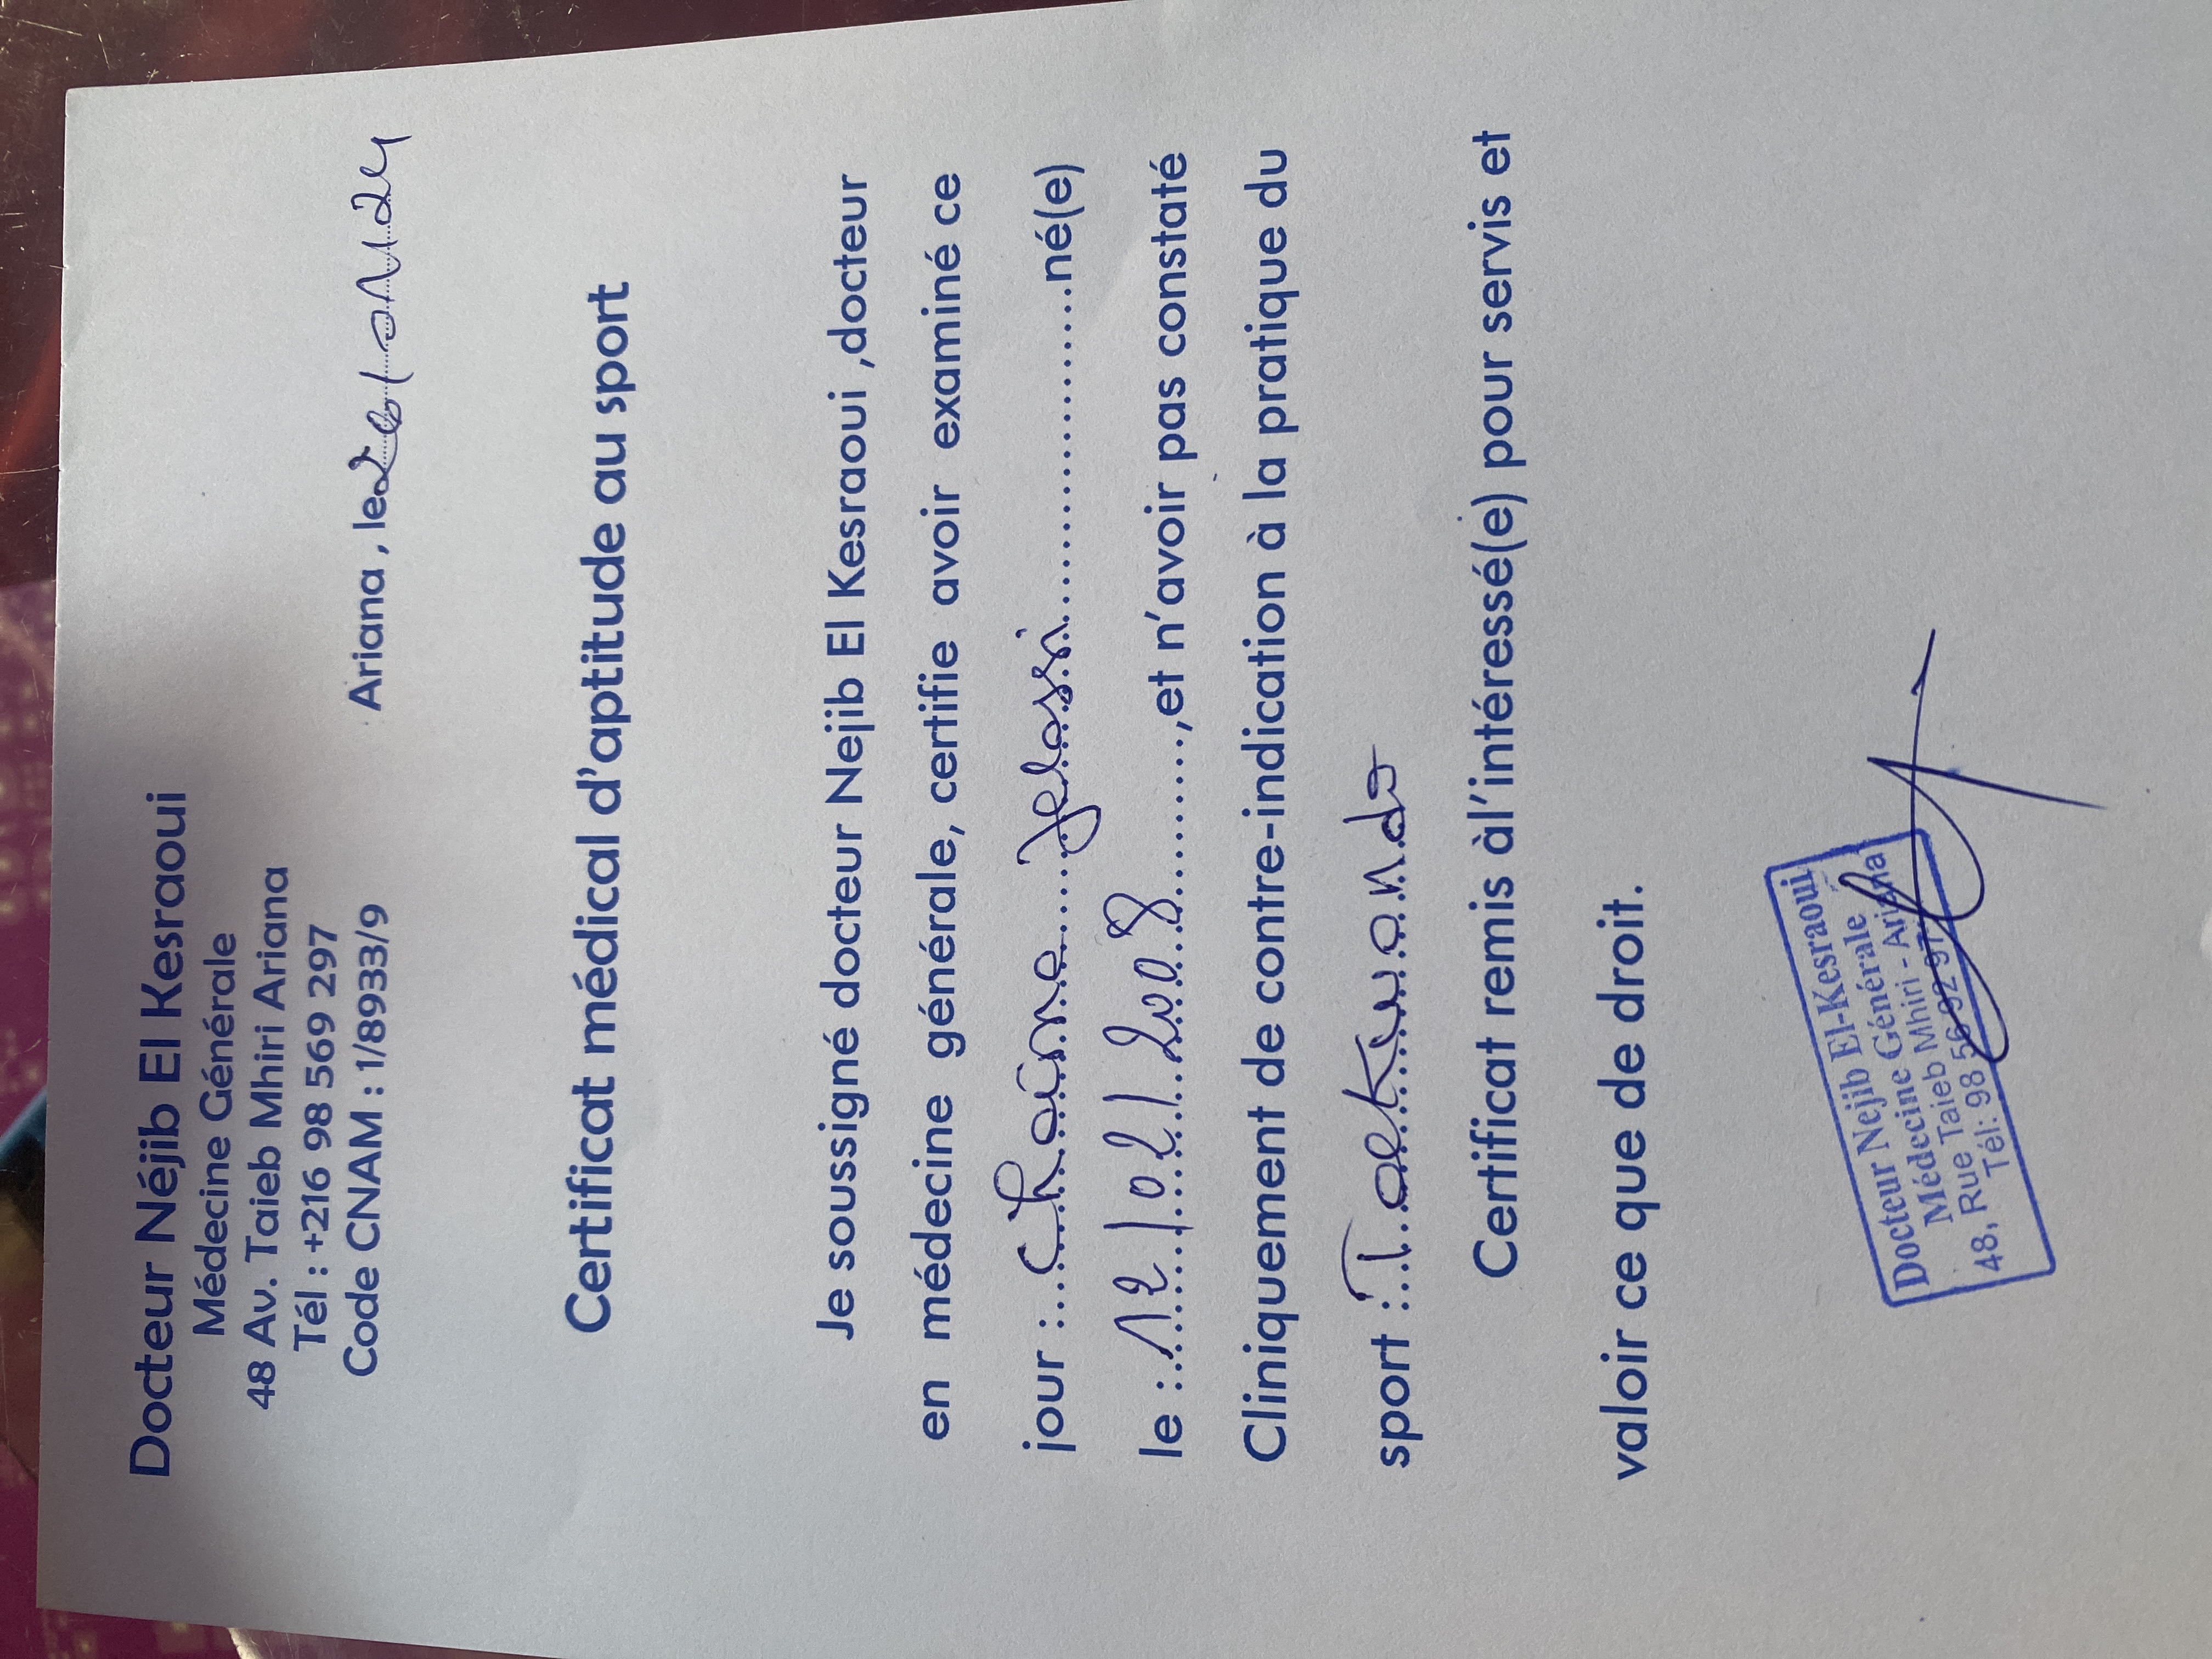 Docteur Néjib El Kesraoui
Médecine Générale
48 Av. Taieb Mhiri Ariana
Tél : +216 98 569 297
Code CNAM : 1/8933/9
Ariana , le
Certificat médical d'aptitude au sport
Je soussigné docteur Nejib El Kesraoui ,docteur
en médecine générale, certifie avoir examiné ce
jour :....Chaima.....Jelassi..................né(e)
le :..12/02/2008..........,et n'avoir pas constaté
Cliniquement de contre-indication à la pratique du
sport :..Taekwondo
Certificat remis àl'intéressé(e) pour servis et
valoir ce que de droit.
Docteur Nejib El-Kesraoui
Médecine Générale
48, Rue Taieb Mhiri - Ariana
Tél: 98 56 92 97